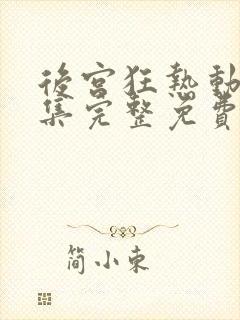 後宮狂熱動
集完整免費
簡小東